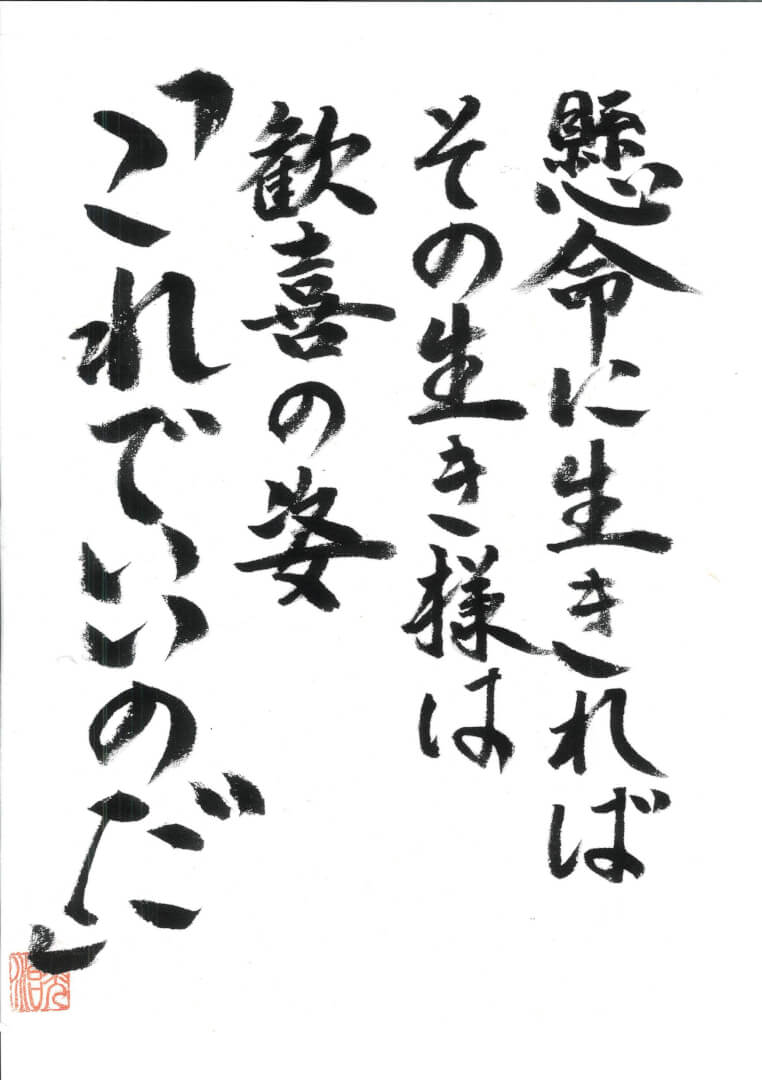 懸命に生きれば
その生き様は
歓喜の姿
「これでいいのだ」